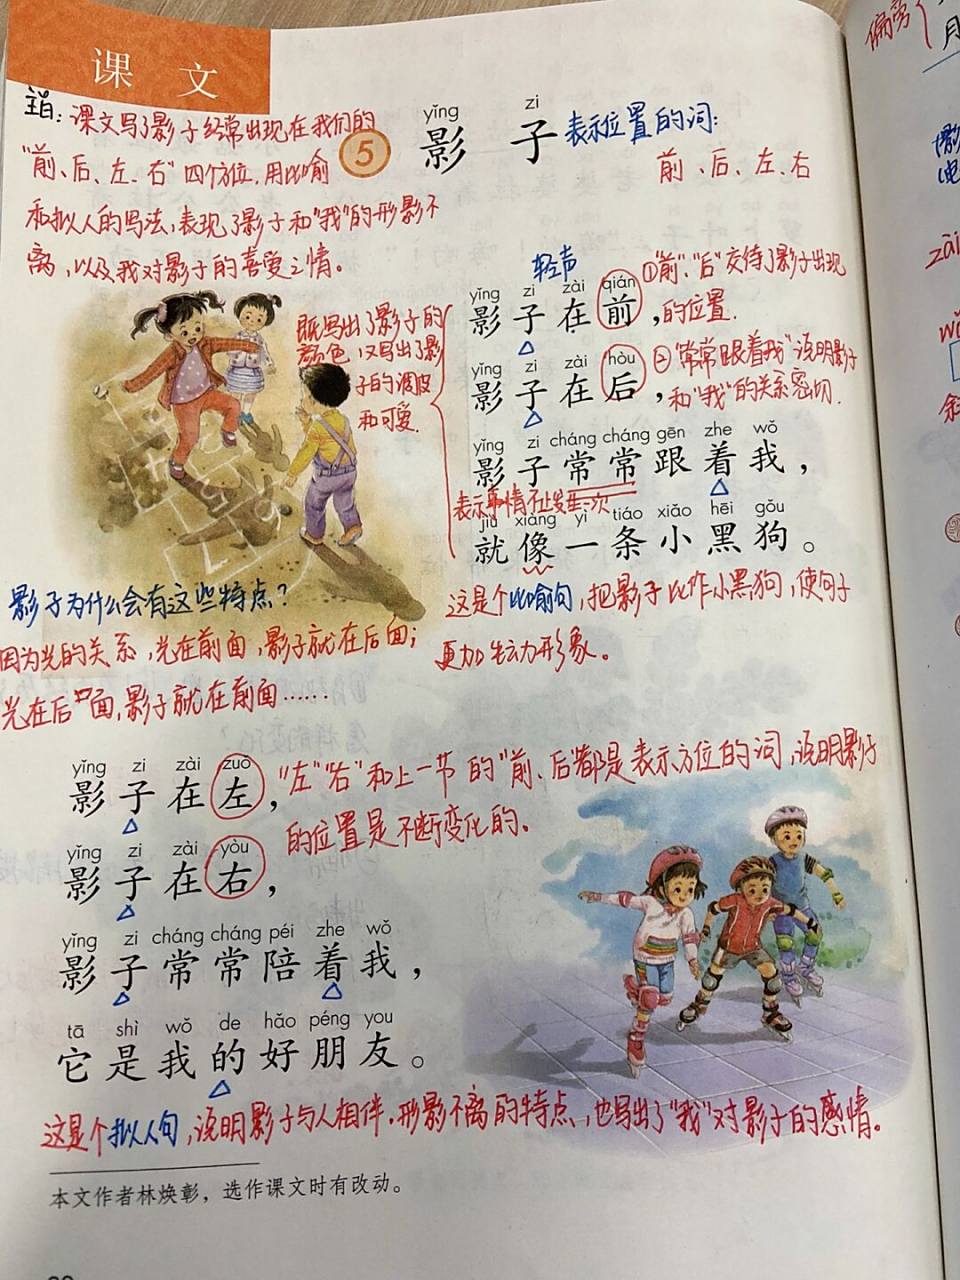 课 文
主旨：课文写了影子经常出现在我们的
"前、后、左、右"四个方位，用比喻
和拟人的写法，表现了影子和"我"的形影不
离，以及我对影子的喜爱之情。
5
yǐng zi
影 子
表示位置的词：
前、后、左、右
轻声
①"前"、"后"交待了影子出现
的位置．
yǐng zi zài qián
影子在前，
②"常常跟着我"说明影子
和"我"的关系密切．
yǐng zi zài hòu
影子在后，
既写出了影子的
颜色，又写出了影
子的调皮
和可爱．
yǐng zi cháng cháng gēn zhe wǒ
影子常常跟着我，
表示事情不止发生一次
jiù xiàng yì tiáo xiǎo hēi gǒu
就像一条小黑狗。
这是个比喻句，把影子比作小黑狗，使句子
更加生动形象。
影子为什么会有这些特点？
因为光的关系，光在前面，影子就在后面；
光在后面，影子就在前面……
yǐng zi zài zuǒ
影子在左，
"左""右"和上一节的"前、后"都是表示方位的词，说明影子
的位置是不断变化的。
yǐng zi zài yòu
影子在右，
yǐng zi cháng cháng péi zhe wǒ
影子常常陪着我，
tā shì wǒ de hǎo péng you
它是我的好朋友。
这是个拟人句，说明影子与人相伴．形影不离的特点，也写出了"我"对影子的感情。
本文作者林焕彰，选作课文时有改动。
偏旁
月
zài